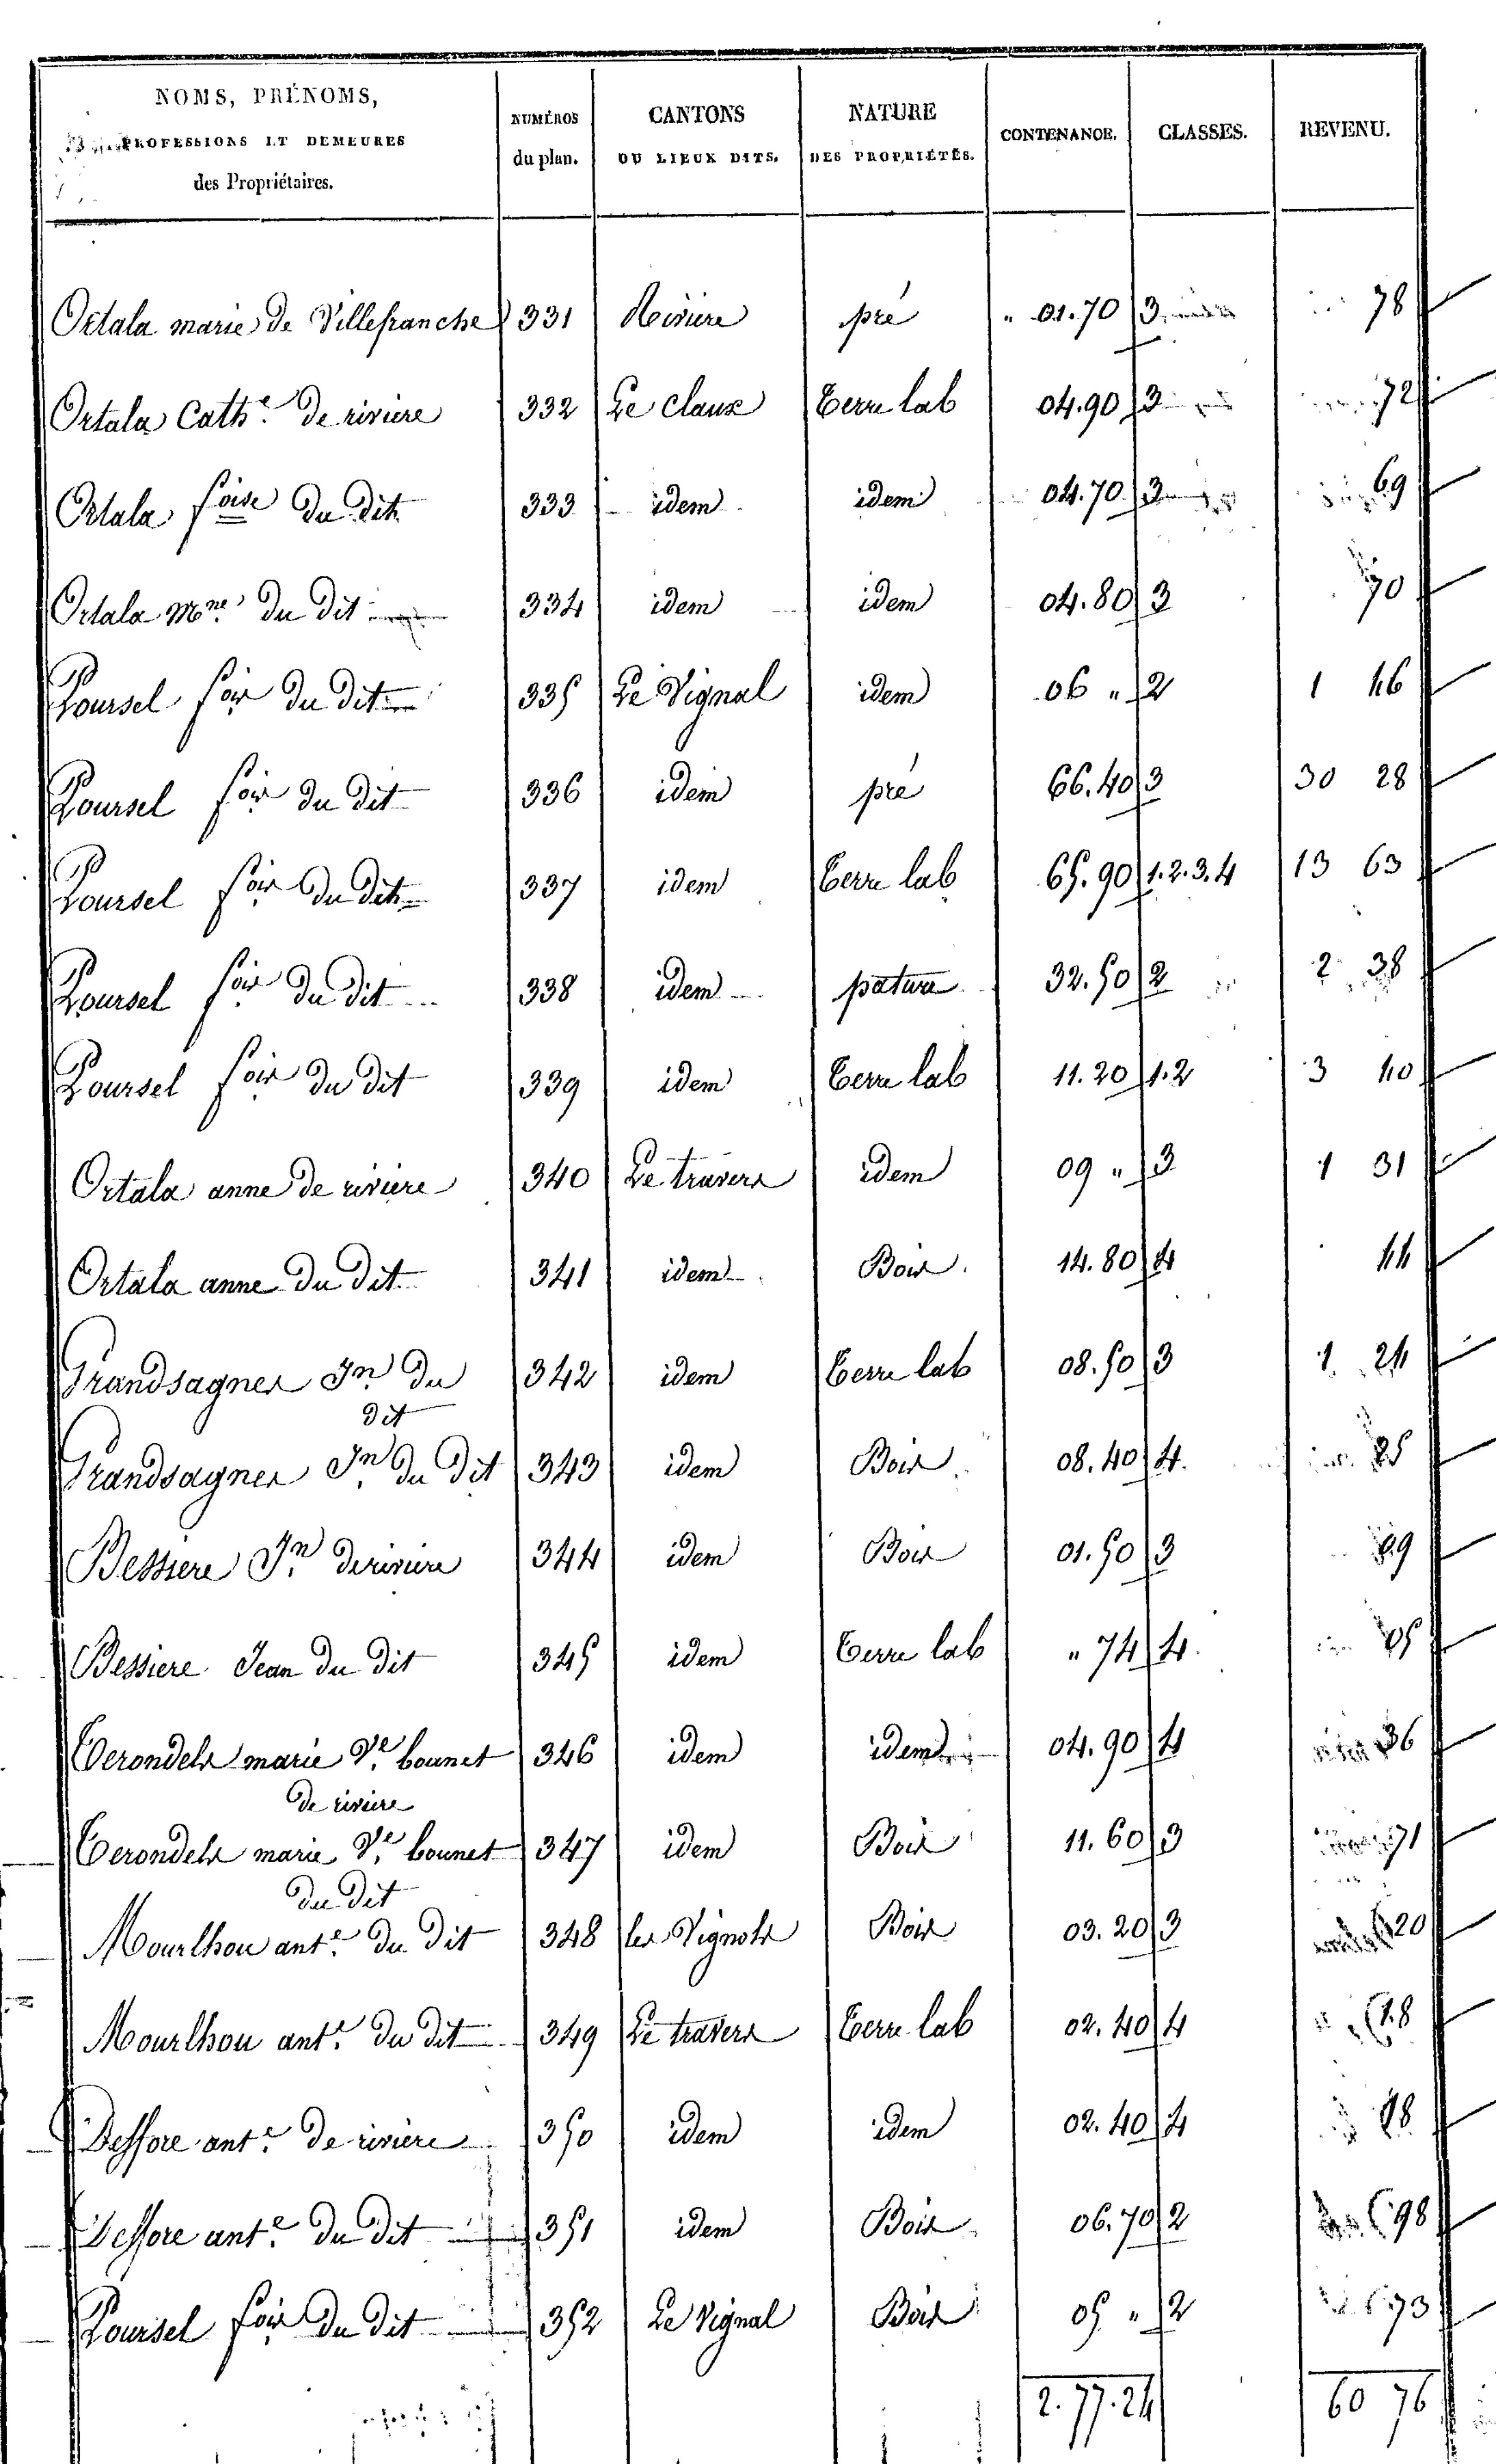 NOMS, PRÉNOMS,
PROFESSIONS ET DEMEURES
des Propriétaires.
NUMÉROS
du plan.
CANTONS
OU LIEUX DITS.
NATURE
DES PROPRIÉTÉS.
CONTENANCE.
CLASSES.
REVENU.
Ortala marie de Villefranche 331 Riviere pré " 01.70 3 78
Ortala Cathe de riviere 332 Le Claux terre lab 04.90 3 72
Ortala foise du dit 333 idem idem 04.70 3 69
Ortala Mne du dit 334 idem idem 04.80 3 70
Poursel fois du dit 335 Le Vignal idem 06 " 2 1 46
Poursel fois du dit 336 idem pré 66.40 3 30 28
Poursel fois du dit 337 idem terre lab 65.90 1.2.3.4 13 63
Poursel fois du dit 338 idem pature 32.50 2 2 38
Poursel fois du dit 339 idem terre lab 11.20 1.2 3 40
Ortala anne de riviere 340 Le travers idem 09 " 3 1 31
Ortala anne du dit 341 idem Bois 14.80 4 44
Grandsagnes Jn du 342 idem terre lab 08.50 3 1 24
dit
Grandsagnes Jn du dit 343 idem Bois 08.40 4 25
Bessiere Jn de riviere 344 idem Bois 01.50 3 09
Bessiere Jean du dit 345 idem terre lab " 74 4 05
Terondels marie Ve bounet 346 idem idem 04.90 4 36
de riviere
Terondels marie Ve bounet 347 idem Bois 11.60 3 71
du dit
Mourlhou ante du dit 348 les Vignols Bois 03.20 3 20
Mourlhou ante du dit 349 Le travers terre lab 02.40 4 18
Dessore ante de riviere 350 idem idem 02.40 4 18
Dessore ante du dit 351 idem Bois 06.70 2 98
Poursel fois du dit 352 Le Vignal Bois 05 " 2 73
2.77.24 60 76